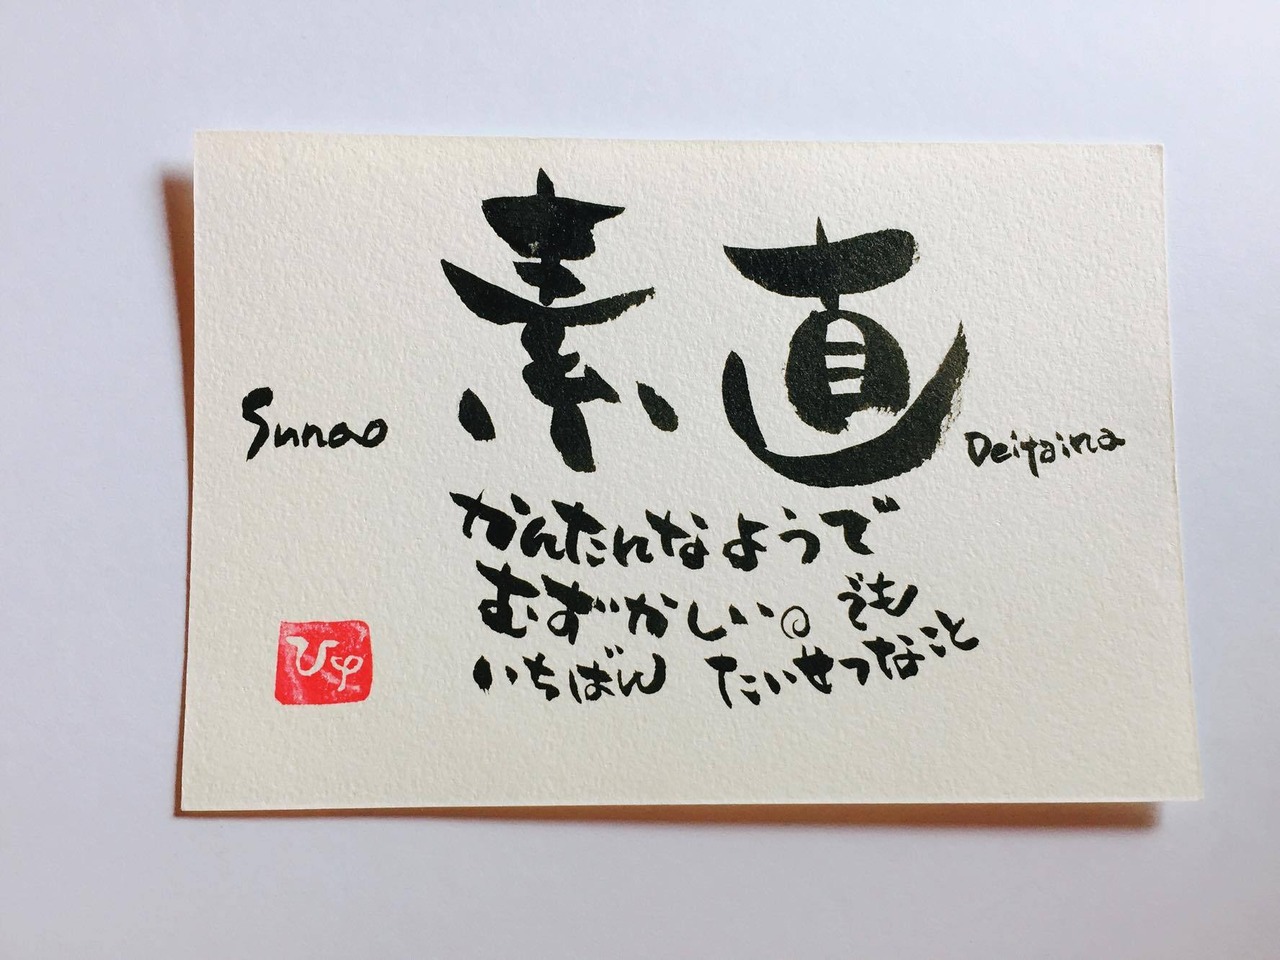 素直
Sunao
Deitaina
かんたんなようで
むずかしい。でも
いちばん たいせつなこと
ひゆ